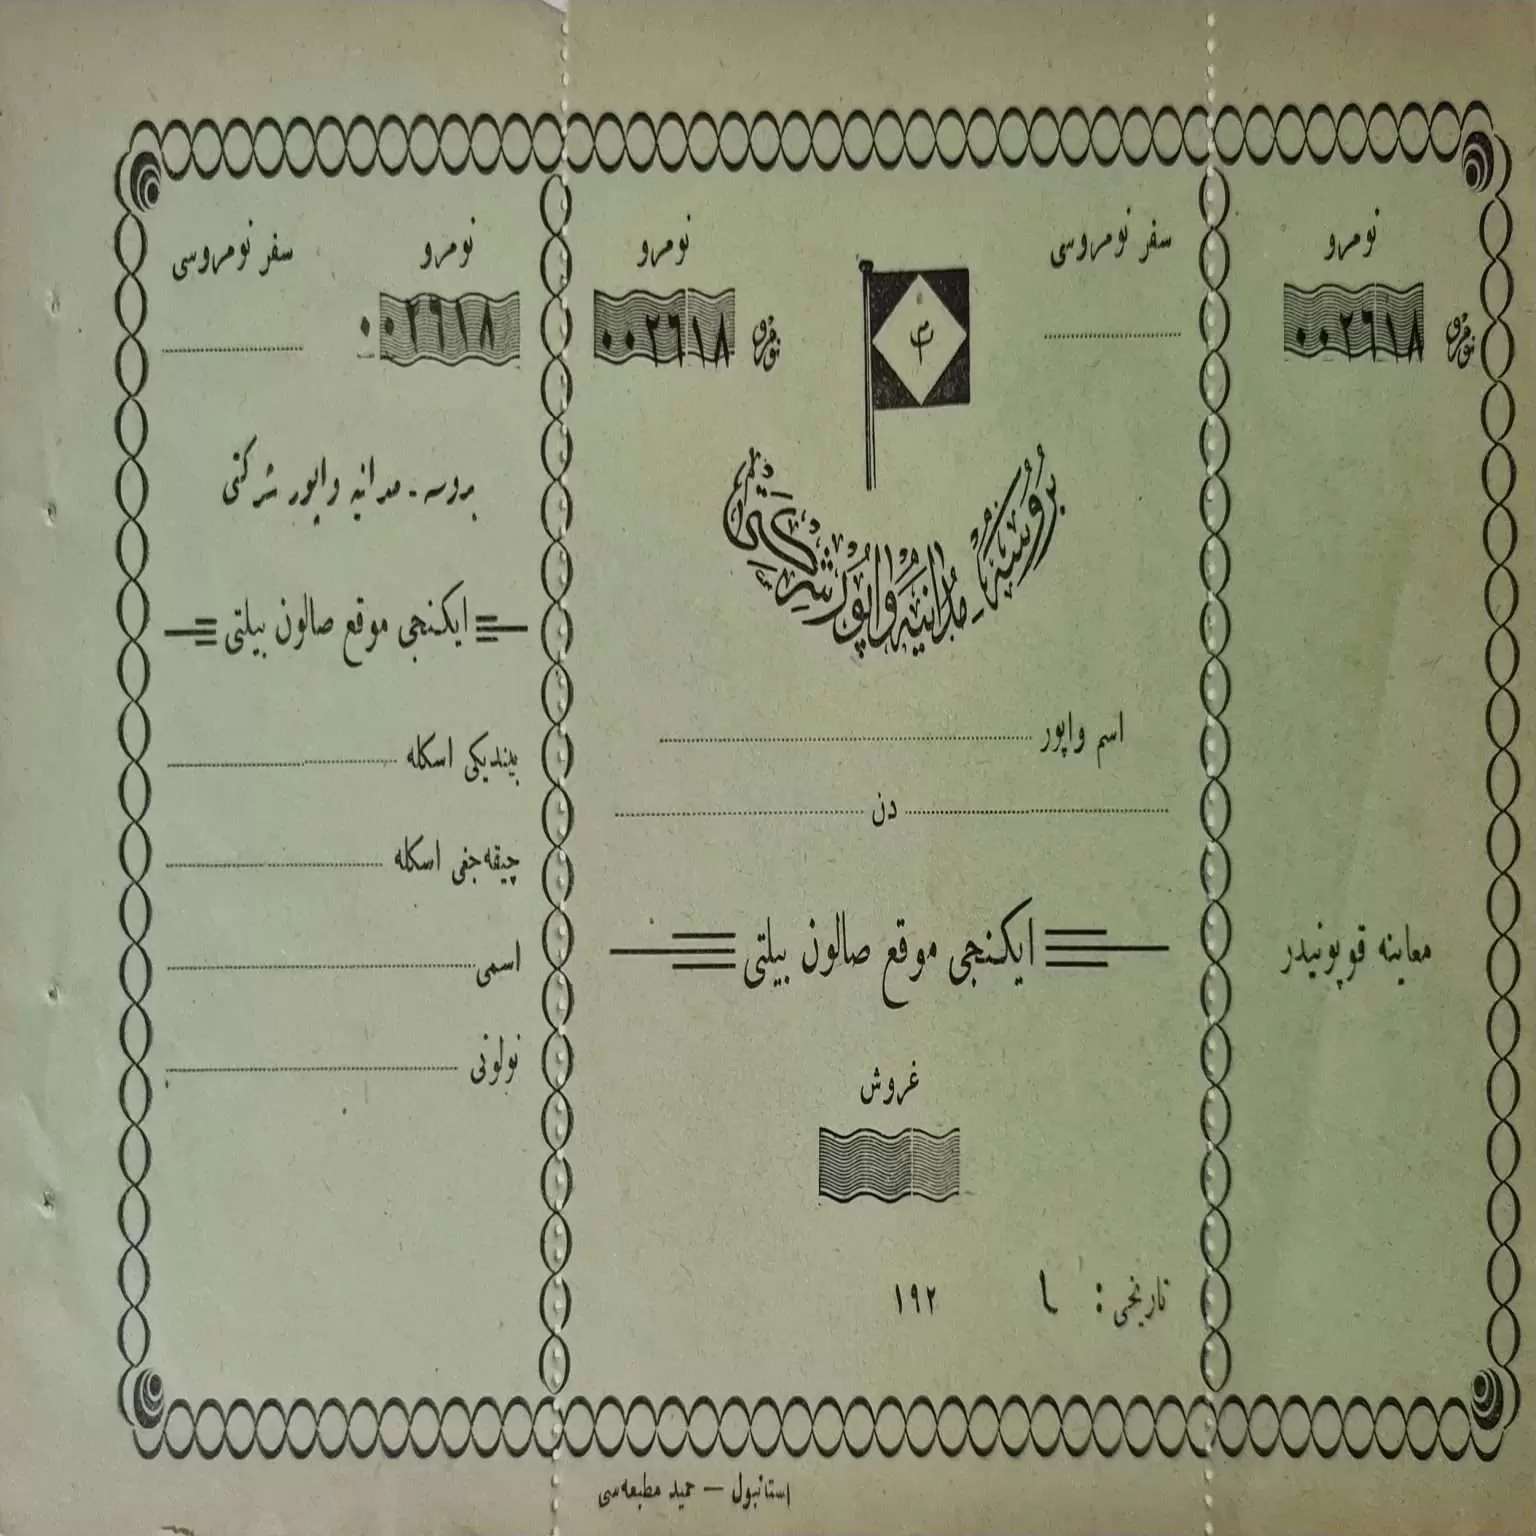 نومرو
نومرو ٠٠٢٦١٨
معاينه قوپونيدر
سفر نومروسی
نومرو
نومرو ٠٠٢٦١٨
بروسه - مدانيه واپور شركتی
اسم واپور
دن
ايكنجی موقع صالون بيلتی
غروش
تاريخی : ١٩٢
نومرو
سفر نومروسی
٠٠٢٦١٨
بروسه - مدانيه واپور شركتی
ايكنجی موقع صالون بيلتی
بينديكی اسكله
چيقه‌جغی اسكله
اسمی
نولونی
استانبول — حميد مطبعه‌سی